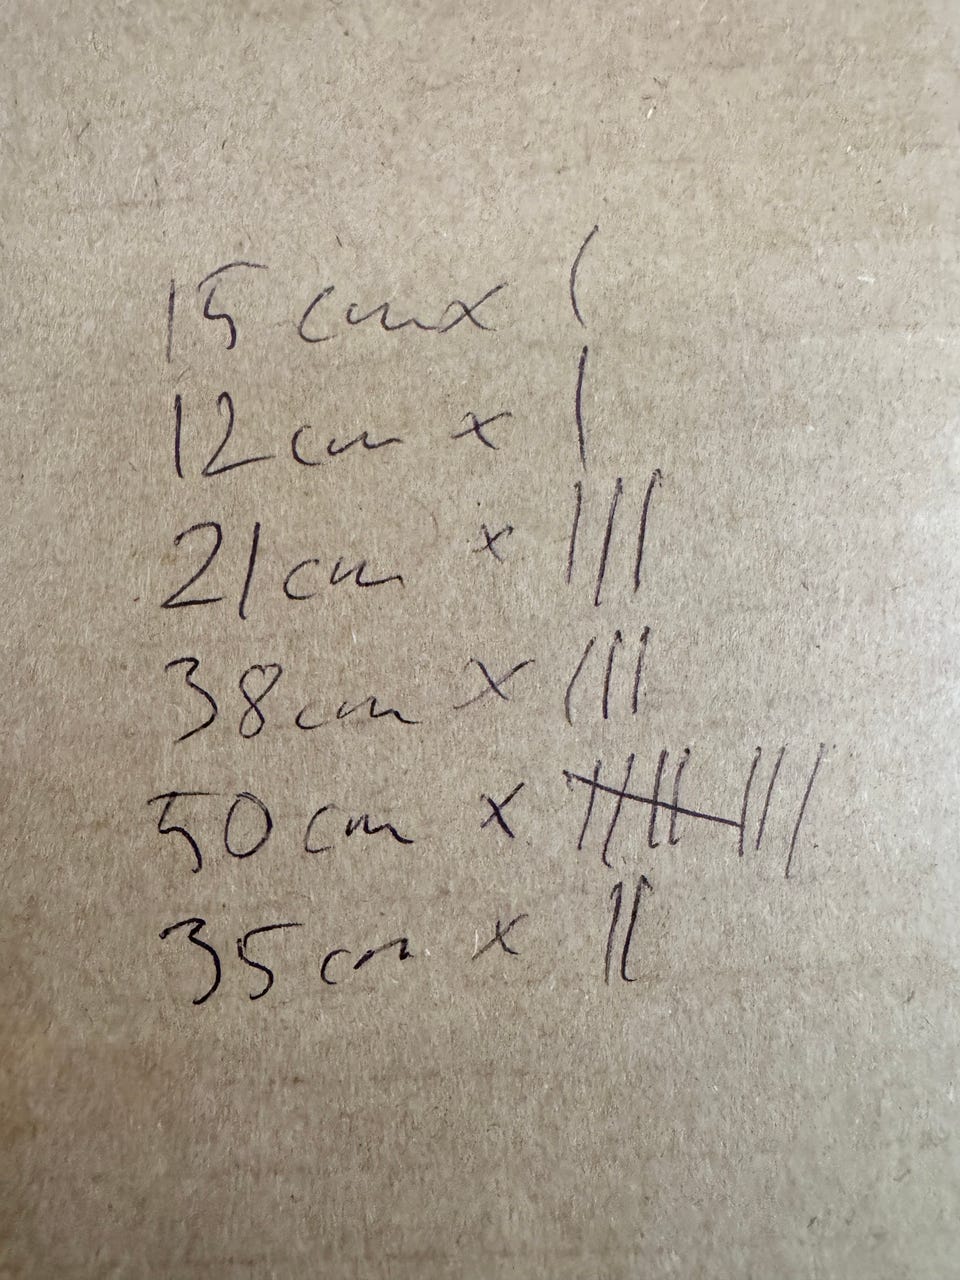 15 cm x |
12 cm x |
21 cm x |||
38 cm x |||
50 cm x 卌 |||
35 cm x ||